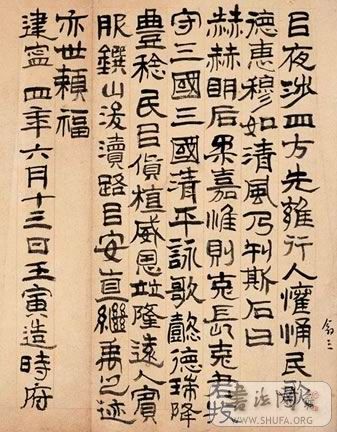 㠯夜涉四方无雍行人懽悀民歌
德惠穆如清風乃刊斯石曰
赫赫明后柔嘉惟則克長克君牧
守三國三國清平詠歌懿德瑞降
豐稔民㠯貨稙威恩並隆遠人賓
服鐉山浚瀆路㠯安直繼禹之迹
亦世賴福
建寧四年六月十三日壬寅造時府
WWW.SHUFA.ORG